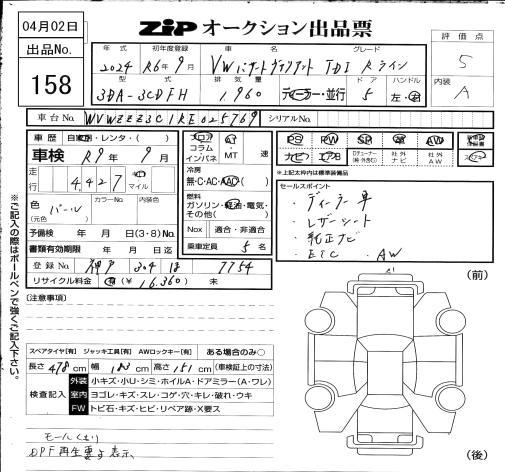 04月02日
ZIP オークション出品票
評価点
5
内装
A
出品No.
158
年式 初年度登録 車名 グレード
2024 R6年9月 VWパサートヴァリアント TDI Rライン
型式 排気量 ドア ハンドル
3DA-3CDFH 1,960 ディーラー・並行 5 左・右
車台No. WVWZZZ3C1RE025769 シリアルNo.
車歴 自家用・レンタ・( )
車検 R9年9月
走行 4,427 キロ マイル
色 (元色) パール カラーNo. 内装色
予備検 年 月 日(3・8)No.
書類有効期限 年 月 日迄
登録No. 神戸 304 は 7754
リサイクル料金 有(¥16,360) 未
フロア コラム インパネ AT MT 速
冷房
無・C・AC・AAC
燃料
ガソリン・軽油・電気・その他( )
Nox 適合・非適合
乗車定員 5名
PS PW SR 革 AW
ナビ エアB Dチューナー(地・外含む) 社外ナビ 社外AW
新車時保証書
スペアキー
*上記太枠内は標準装備品
セールスポイント
・ディーラー車
・レザーシート
・純正ナビ
・ETC ・AW
[注意事項]
(前)
スペアタイヤ[有] ジャッキ工具[有] AWロックキー[有] ある場合のみ○
長さ478cm 幅183cm 高さ151cm (車検証上の寸法)
検査記入
外装 小キズ・小U・シミ・ホイルA・ドアミラー(A・ワレ)
室内 ヨゴレ・キズ・スレ・コゲ・穴・キレ・破れ・ウキ
FW トビ石・キズ・ヒビ・リペア跡・X要ス
モールくもり
DPF再生要す表示、
(後)
※ご記入の際はボールペンで強くご記入下さい。